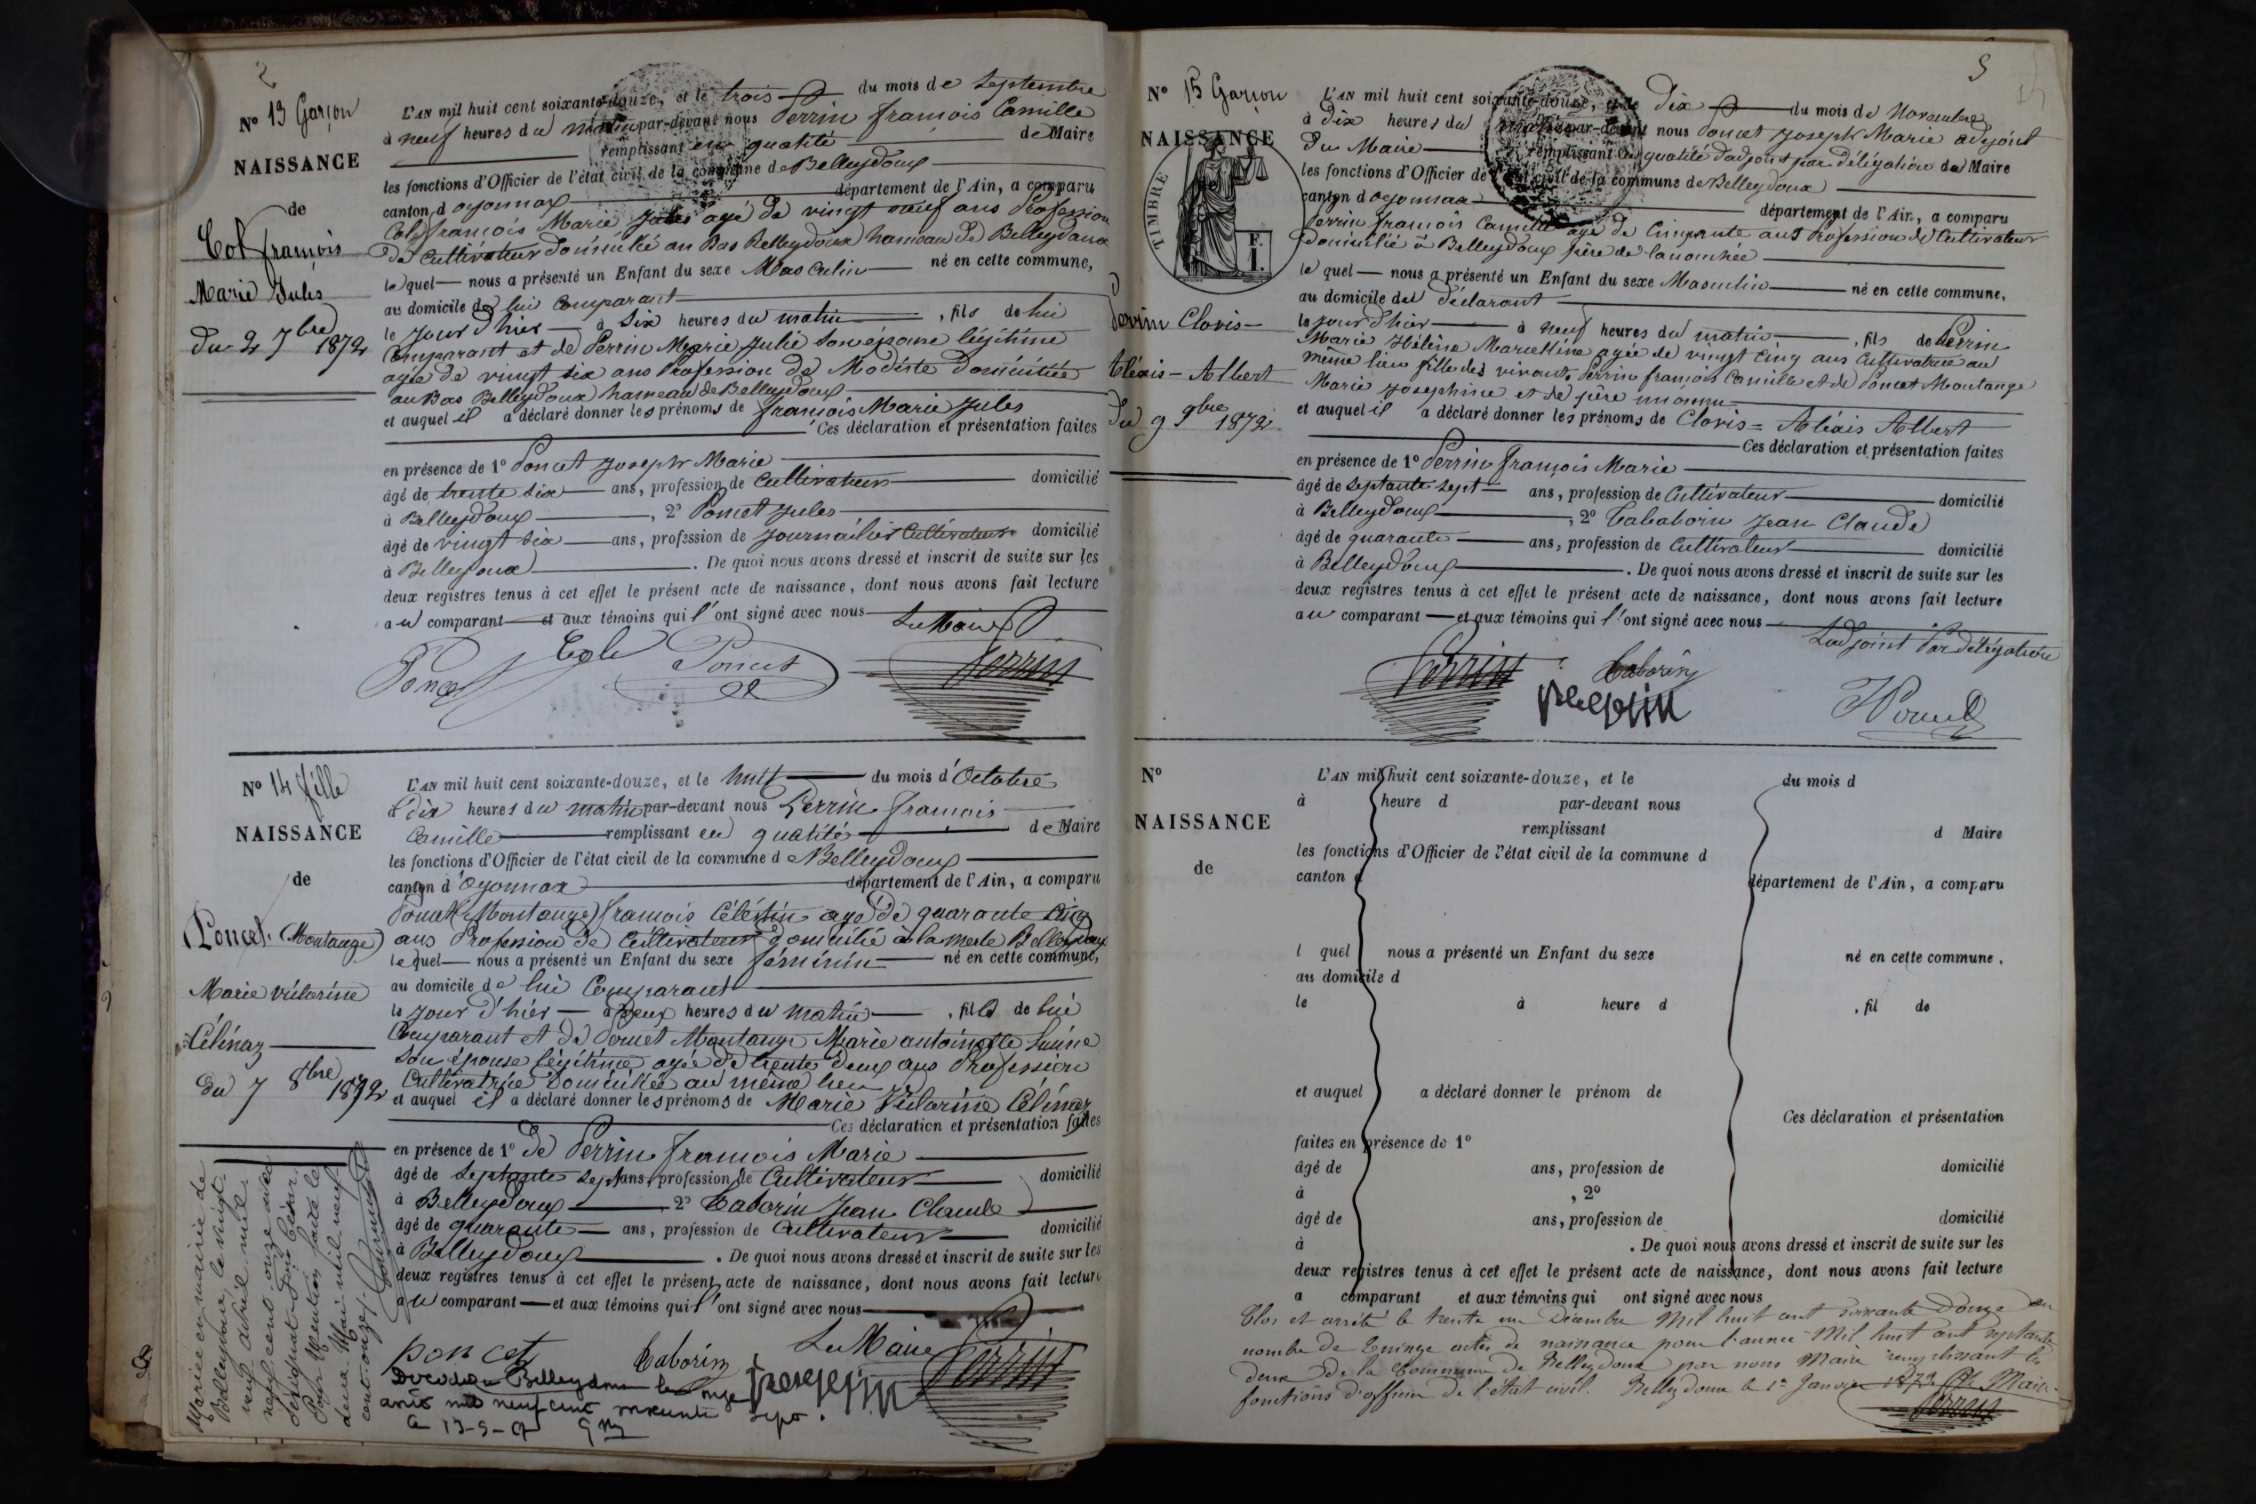 2
N° 13 Garçon
NAISSANCE
de
Cot françois
Marie Jules
du 2 7bre 1872
L'AN mil huit cent soixante-douze, et le trois du mois de Septembre
à neuf heures du matin par-devant nous Perrin françois Camille
remplissant en qualité de Maire
les fonctions d'Officier de l'état civil de la commune de Belleydoux
canton d'oyonnax département de l'Ain, a comparu
Cot françois Marie Jules agé de vingt neuf ans Profession
de Cultivateur domicilié au Bas Belleydoux hameau de Belleydoux
lequel nous a présenté un Enfant du sexe Masculin né en cette commune,
au domicile de lui Comparant
le jour d'hier à six heures du matin, fils de lui
Comparant et de Perrin Marie Julie son épouse légitime
agée de vingt six ans Profession de Modiste domiciliée
au Bas Belleydoux hameau de Belleydoux
et auquel il a déclaré donner les prénoms de françois Marie Jules
Ces déclaration et présentation faites
en présence de 1° Poncet Joseph Marie
âgé de trente six ans, profession de Cultivateur domicilié
à Belleydoux, 2° Poncet Jules
âgé de vingt six ans, profession de journalier Cultivateur domicilié
à Belleydoux. De quoi nous avons dressé et inscrit de suite sur les
deux registres tenus à cet effet le présent acte de naissance, dont nous avons fait lecture
au comparant et aux témoins qui l'ont signé avec nous
Le Maire
Poncet Poncet Perrin
N° 14 fille
NAISSANCE
de
Poncet (Montange)
Marie Victorine
Célinaz
du 7 8bre 1872
L'AN mil huit cent soixante-douze, et le huit du mois d'Octobre
à dix heures du matin par-devant nous Perrin françois
Camille remplissant en qualité de Maire
les fonctions d'Officier de l'état civil de la commune de Belleydoux
canton d'Oyonnax département de l'Ain, a comparu
Poncet (Montange) françois Célestin agé de quarante cinq
ans Profession de Cultivateur domicilié à la Belleydoux
lequel nous a présenté un Enfant du sexe féminin né en cette commune,
au domicile de lui Comparant
le jour d'hier à deux heures du matin, fille de lui
Comparant et de Poncet Montange Marie antoinette
son épouse légitime agée de trente deux ans Profession
Cultivatrice domiciliée au même lieu
et auquel il a déclaré donner les prénoms de Marie Victorine Célinaz
Ces déclaration et présentation faites
en présence de 1° de Perrin françois Marie
âgé de septante sept ans, profession de Cultivateur domicilié
à Belleydoux 2° Taborin Jean Claude
âgé de quarante ans, profession de Cultivateur domicilié
à Belleydoux. De quoi nous avons dressé et inscrit de suite sur les
deux registres tenus à cet effet le présent acte de naissance, dont nous avons fait lecture
au comparant et aux témoins qui l'ont signé avec nous
Le Maire
poncet Taborin Perrin
Décédée Belleydoux le onze
août mil neuf cent sept.
Mariée en mairie de
Belleydoux, le vingt
neuf avril mil
neuf cent onze avec
César.
Pour Mention faite le
deux Mai mil neuf
cent onze.
3
N° 15 Garçon
NAISSANCE
TIMBRE
F. I.
Perrin Clovis-
Aléxis - Albert
Du 9 9bre 1872
L'AN mil huit cent soixante-douze, et le Dix du mois de Novembre
à Dix heures du matin par-devant nous Poncet Joseph Marie adjoint
du Maire remplissant en qualité d'adjoint par délégation du Maire
les fonctions d'Officier de l'état civil de la commune de Belleydoux
canton d'oyonnax département de l'Ain, a comparu
Perrin françois Camille agé de Cinquante ans Profession de Cultivateur
domicilié à Belleydoux père de l'accouchée
lequel nous a présenté un Enfant du sexe Masculin né en cette commune,
au domicile du déclarant
le jour d'hier à neuf heures du matin, fils de Perrin
Marie Hélène Marcelline agée de vingt cinq ans Cultivatrice au
même lieu fille des vivants Perrin françois Camille et de Poncet Montange
Marie Josephine et de père inconnu
et auquel il a déclaré donner les prénoms de Clovis = Aléxis Albert
Ces déclaration et présentation faites
en présence de 1° Perrin françois Marie
âgé de septante sept ans, profession de Cultivateur domicilié
à Belleydoux, 2° Tababorin Jean Claude
âgé de quarante ans, profession de Cultivateur domicilié
à Belleydoux. De quoi nous avons dressé et inscrit de suite sur les
deux registres tenus à cet effet le présent acte de naissance, dont nous avons fait lecture
au comparant et aux témoins qui l'ont signé avec nous
L'adjoint Par délégation
Perrin Taborin
N°
NAISSANCE
de
L'AN mil huit cent soixante-douze, et le du mois d
à heure d par-devant nous
remplissant d Maire
les fonctions d'Officier de l'état civil de la commune d
canton d département de l'Ain, a comparu
l quel nous a présenté un Enfant du sexe né en cette commune,
au domicile d
le à heure d, fil de
et auquel a déclaré donner le prénom de
Ces déclaration et présentation
faites en présence de 1°
âgé de ans, profession de domicilié
à, 2°
âgé de ans, profession de domicilié
à. De quoi nous avons dressé et inscrit de suite sur les
deux registres tenus à cet effet le présent acte de naissance, dont nous avons fait lecture
a comparant et aux témoins qui ont signé avec nous
Clos et arrêté le trente un Décembre Mil huit cent soixante douze au
nombre de Quinze actes de naissance pour l'année Mil huit cent septante
deux de la Commune de Belleydoux par nous Maire remplissant les
fonctions d'officier de l'état civil. Belleydoux le 1er Janvier 1873 Le Maire
Perrin